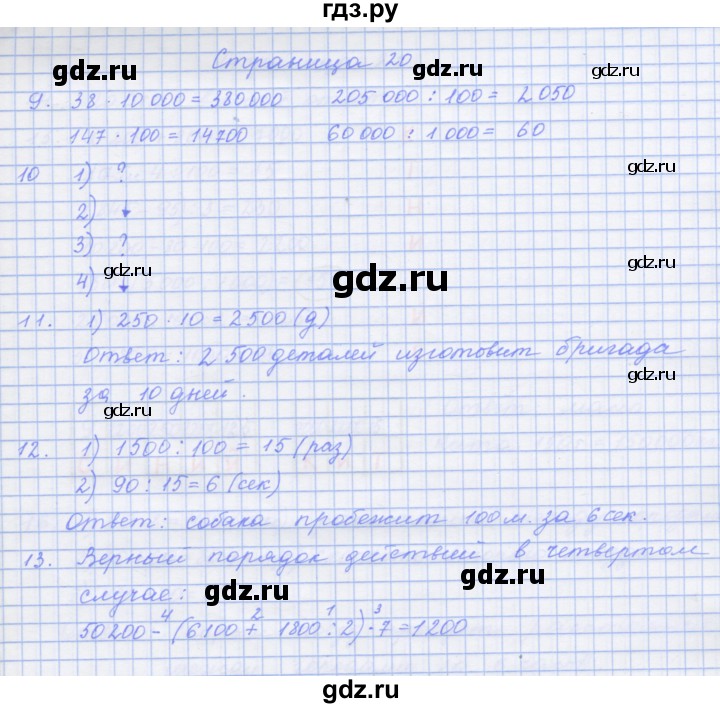 гдз.ру
Страница 20
gdz.ru
gdz.ru
9. 38 · 10 000 = 380 000 205 000 : 100 = 2 050
147 · 100 = 14700 60 000 : 1 000 = 60
10 1) ?
gdz.ru
2) ↓
3) ?
gdz.ru
4) ↓
gdz.ru
11. 1) 250 · 10 = 2 500 (д)
Ответ: 2 500 деталей изготовит бригада
gdz.ru
за 10 дней.
gdz.ru
12. 1) 1500 : 100 = 15 (раз)
gdz.ru
2) 90 : 15 = 6 (сек)
Ответ: собака пробежит 100 м. за 6 сек.
13. Верный порядок действий в четвертом
gdz.ru
случае:
gdz.ru
4 2 1 3
50 200 - (6 100 + 1800 : 2) · 7 = 1200
gdz.ru
gdz.ru